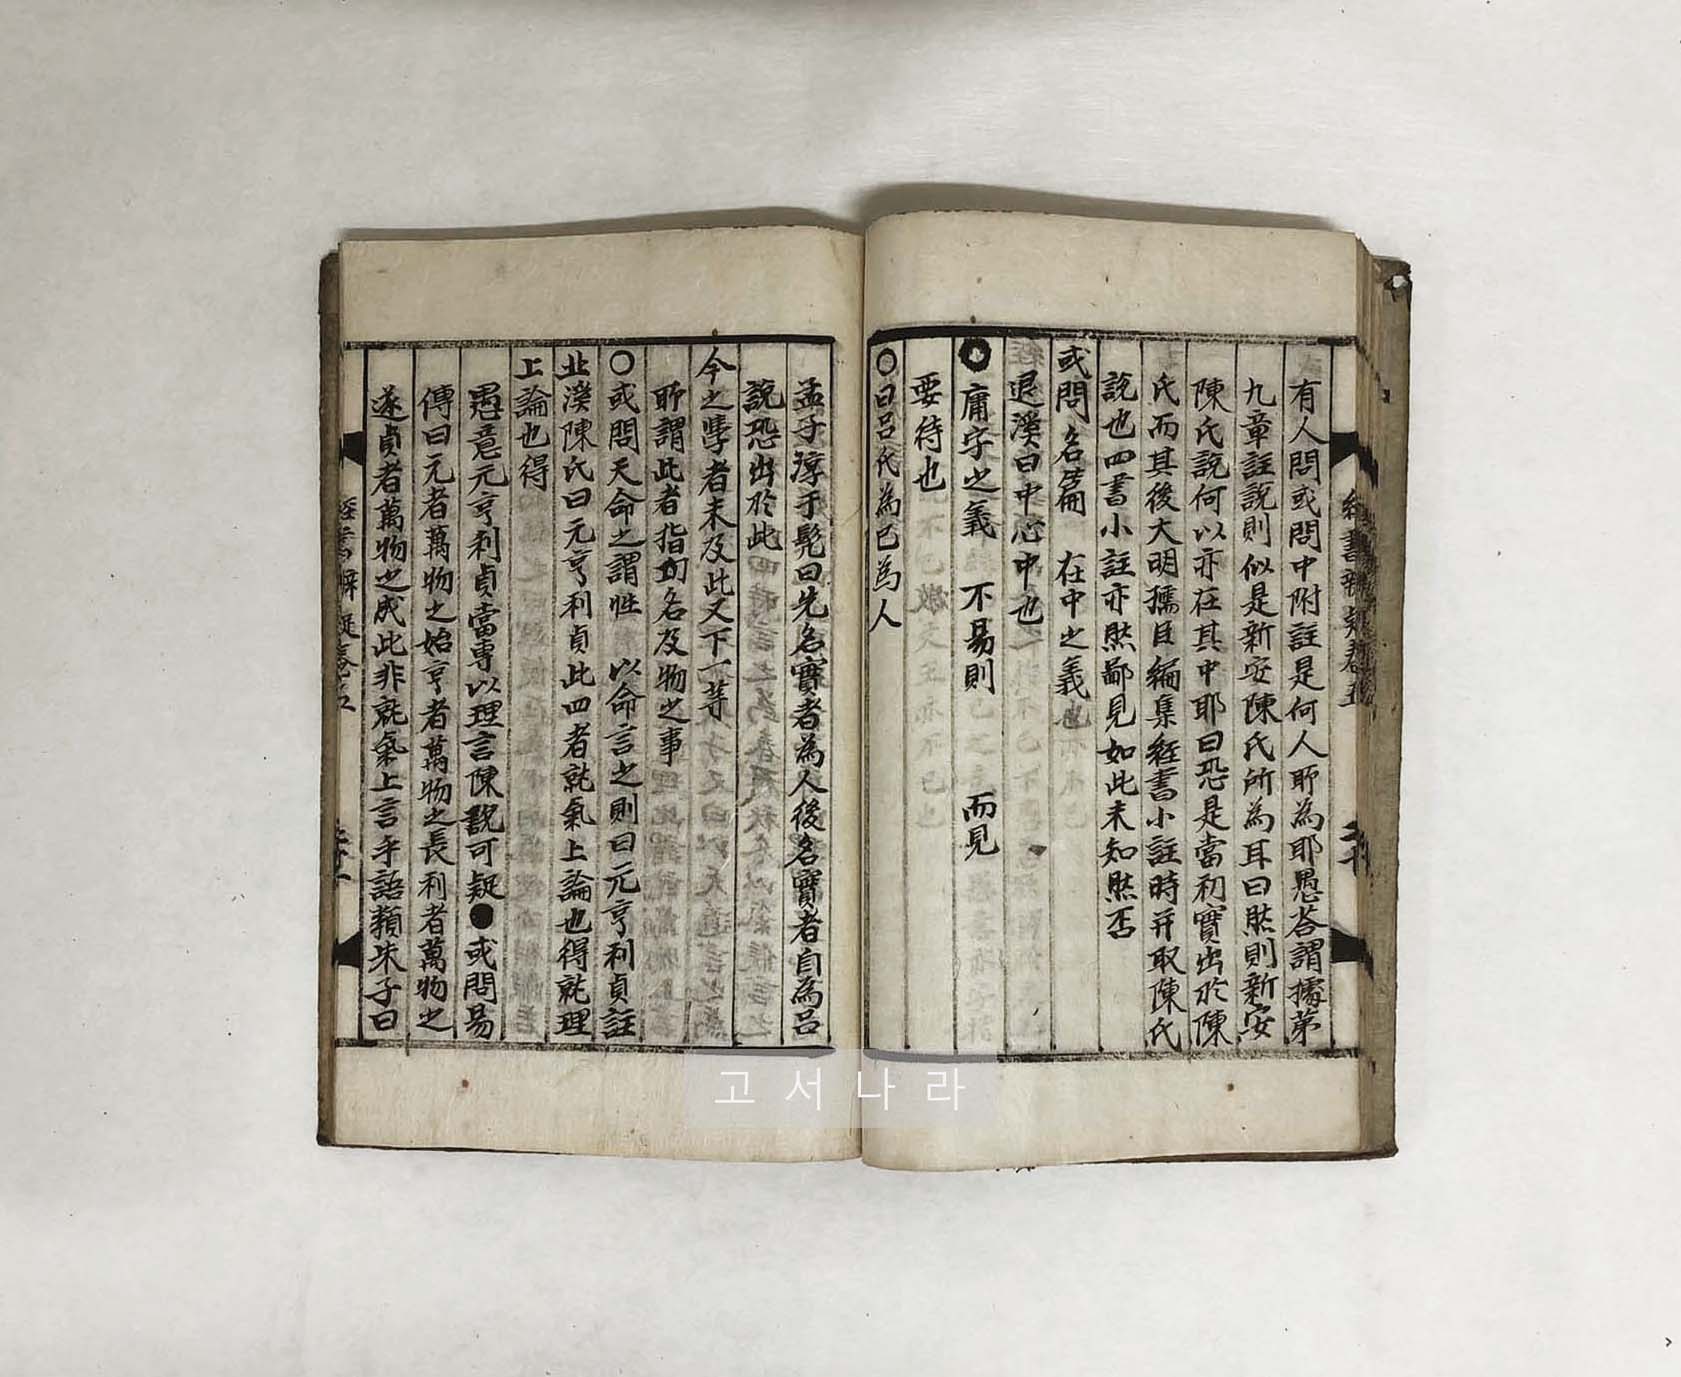 有人問或問中附註是何人所為耶愚答謂據第
九章註說則似是新安陳氏所為耳曰然則新安
陳氏說何以亦在其中耶曰恐是當初實出於陳
氏而其後大明儒臣編集經書小註時并取陳氏
說也四書小註亦然鄙見如此未知然否
或問名篇 在中之義也
退溪曰中心中也
庸字之義 不易則 而見
要待也
○曰呂氏為己為人
孟子淳于髡曰先名實者為人後名實者自為呂
說恐出於此
今之學者未及此又下一等
所謂此者指功名及物之事
○或問天命之謂性 以命言之則曰元亨利貞註
北溪陳氏曰元亨利貞此四者就氣上論也得就理
上論也得
愚意元亨利貞當專以理言陳說可疑●或問易
傳曰元者萬物之始亨者萬物之長利者萬物之
遂貞者萬物之成此非就氣上言乎語類朱子曰
經書辨疑卷五
고서나라